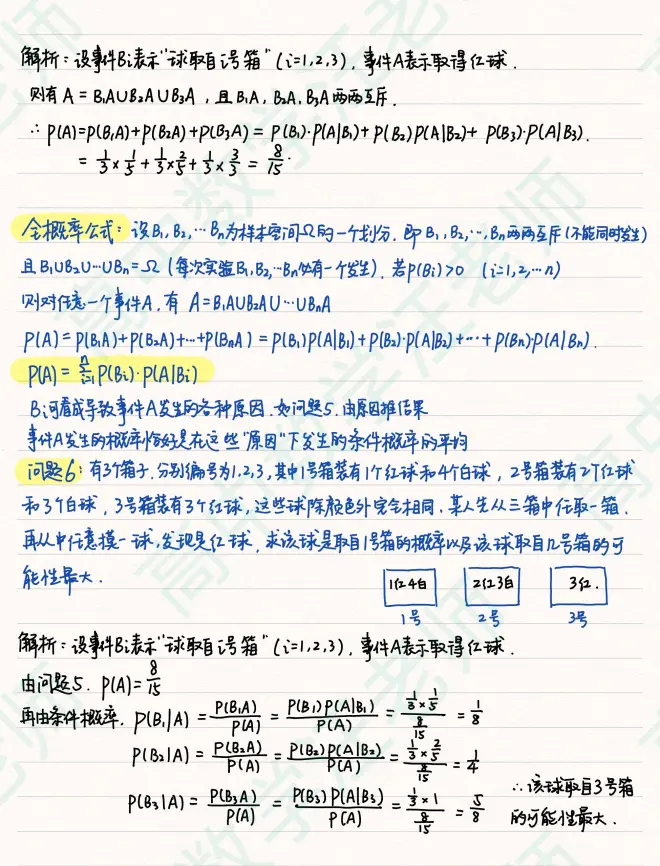 解析：设事件Bi表示“球取自i号箱”（i=1,2,3），事件A表示取得红球．
则有A=B₁A∪B₂A∪B₃A，且B₁A, B₂A, B₃A两两互斥．
∴P(A)=P(B₁A)+P(B₂A)+P(B₃A)=P(B₁)·P(A|B₁)+P(B₂)P(A|B₂)+P(B₃)·P(A|B₃).
=1/3×1/5+1/3×2/5+1/3×3/3=8/15.
全概率公式：设B₁,B₂,…Bn为样本空间Ω的一个划分．即B₁,B₂,…,Bn两两互斥（不能同时发生）
且B₁∪B₂∪…∪Bn=Ω（每次实验B₁,B₂,…Bn必有一个发生）．若P(Bi)>0 （i=1,2,…n）
则对任意一个事件A，有 A=B₁A∪B₂A∪…∪BnA
P(A)=P(B₁A)+P(B₂A)+…+P(BnA)=P(B₁)P(A|B₁)+P(B₂)·P(A|B₂)+…+P(Bn)·P(A|Bn).
P(A)=∑ⁿᵢ₌₁P(Bi)·P(A|Bi)
Bi可看成导致事件A发生的各种原因．如问题5．由原因推结果
事件A发生的概率恰好是在这些“原因”下发生的条件概率的平均
问题6：有3个箱子．分别编号为1,2,3，其中1号箱装有1个红球和4个白球，2号箱装有2个红球
和3个白球，3号箱装有3个红球，这些球除颜色外完全相同．某人先从三箱中任取一箱．
再从中任意摸一球，发现是红球，求该球是取自1号箱的概率以及该球取自几号箱的可
能性最大．
1红4白 2红3白 3红.
1号 2号 3号
解析：设事件Bi表示“球取自i号箱”（i=1,2,3），事件A表示取得红球．
由问题5．P(A)=8/15
再由条件概率．P(B₁|A)=P(B₁A)/P(A)=P(B₁)P(A|B₁)/P(A)=(1/3×1/5)/(8/15)=1/8
P(B₂|A)=P(B₂A)/P(A)=P(B₂)P(A|B₂)/P(A)=(1/3×2/5)/(8/15)=1/4
P(B₃|A)=P(B₃A)/P(A)=P(B₃)P(A|B₃)/P(A)=(1/3×1)/(8/15)=5/8
∴该球取自3号箱
的可能性最大．
高中数学汪老师